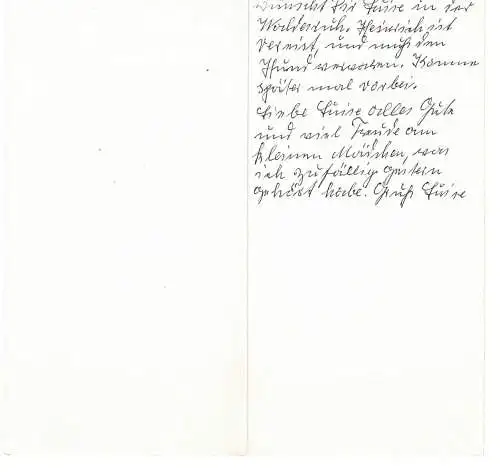 wünscht Dir Luise in der
Waldesruh. Heinrich ist
verreist, und muß den
Hund verwaren. Komme
später mal vorbei.
Liebe Luise alles Gute
und viel Freude am
kleinen Mädchen, was
ich zufällig gestern
gehört habe. Gruß Luise